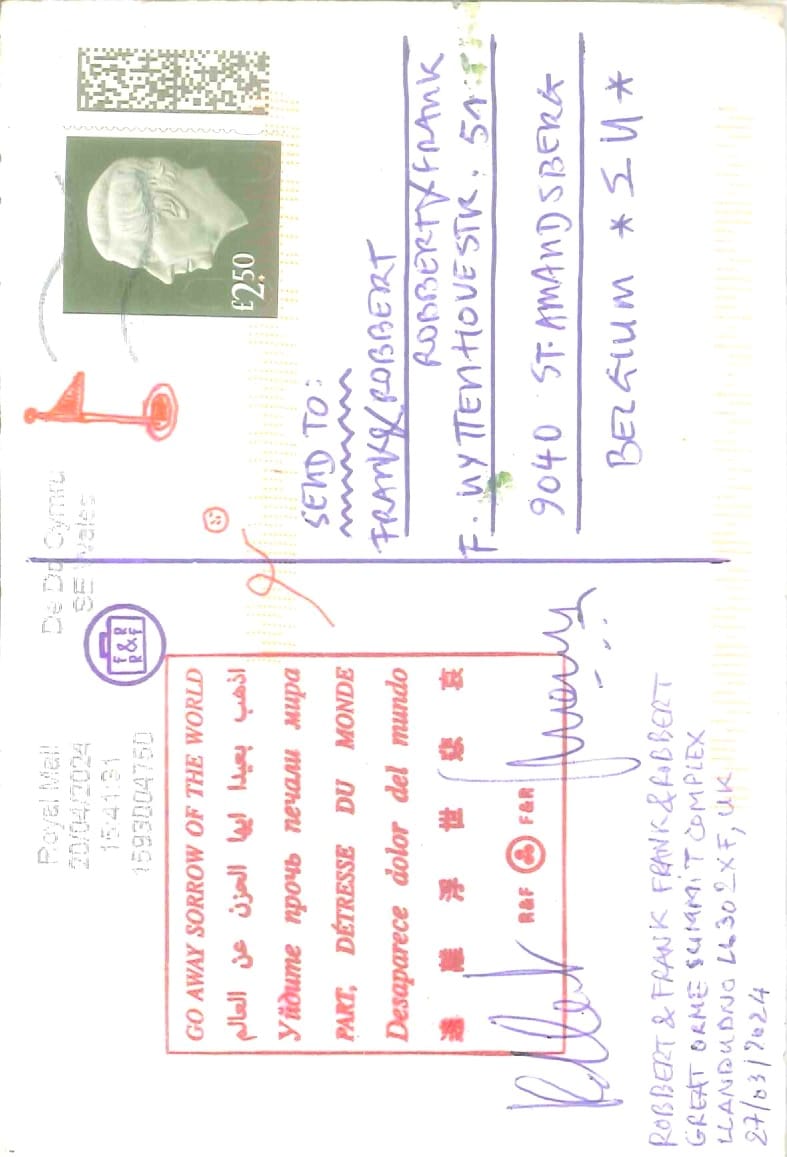 Royal Mail
20/04/2024
15:41:31
1593004750
De Du Cymru
SE Wales
£2.50
F & R
R & F
GO AWAY SORROW OF THE WORLD
اذهب بعيدا ايها الحزن عن العالم
Уйдите прочь печали мира
PART, DÉTRESSE DU MONDE
Desaparece dolor del mundo
離 浮 世 悲 哀
R&F F&R
ROBBERT & FRANK FRANK & ROBBERT
GREAT ORME SUMMIT COMPLEX
LLANDUDNO LL30 2XF, UK
27/03/2024
SEND TO:
FRANK & ROBBERT
ROBBERT & FRANK
F. WYTTENHOVESTR. 51
9040 ST. AMANDSBERG
BELGIUM * EU *